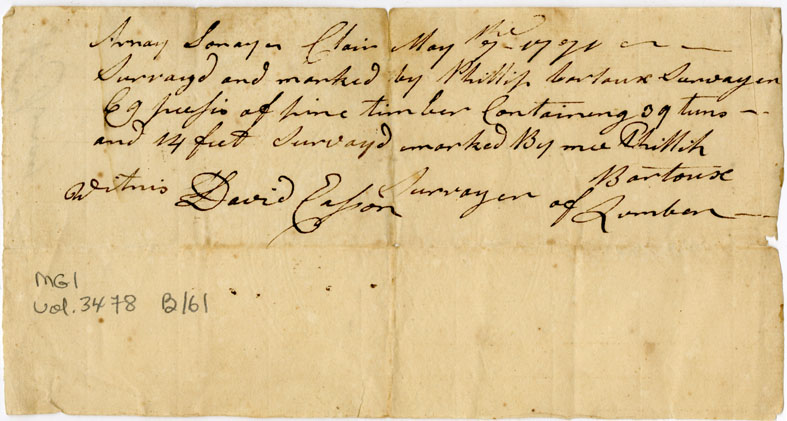 Clair May 1791
Survayd and marked by Phillip bartoux Survayer
69 pesis of pine timber Containeng 39 tuns
and 14 feet Survayd marked By mee Phillip
Bartoux
Witnis David Easson Survayer of Lumber
MG1
Vol. 3478 B/61